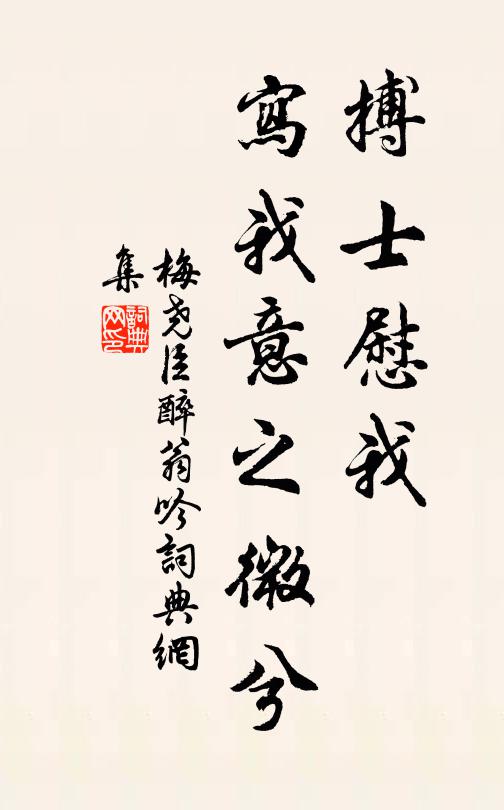 搏士慰我
寫我意之微兮
梅堯臣醉翁吟詞典網
集
詞典
网印